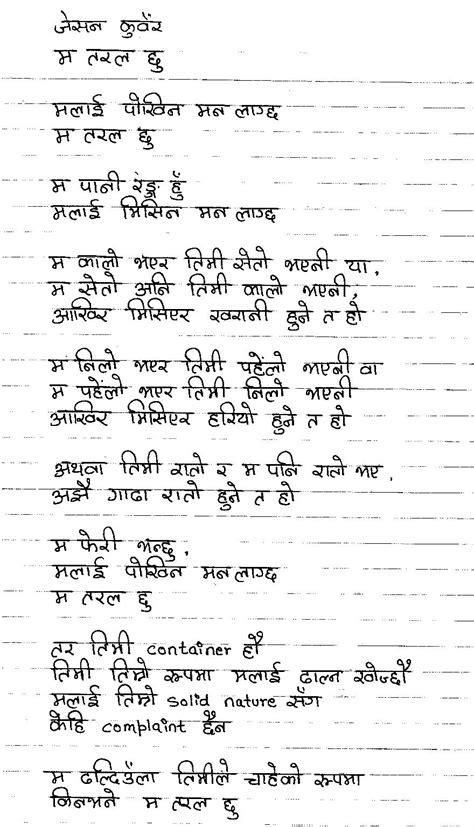 जेसन कुवेँर
म तरल छु
मलाई पोखिन मन लाग्छ
म तरल छु
म पानी रंङ्ग हुँ
मलाई मिसिन मन लाग्छ
म कालो भएर तिमी सेतो भएनी या,
म सेतो अनि तिमी कालो भएनी,
आखिर मिसिएर खरानी हुने त हो
म निलो भएर तिमी पहेंलो भएनी वा
म पहेंलो भएर तिमी निलो भएनी
आखिर मिसिएर हरियो हुने त हो
अथवा तिमी रातो र म पनि रातो भए,
अझै गाढा रातो हुने त हो
म फेरी भन्छु,
मलाई पोखिन मन लाग्छ
म तरल छु
तर तिमी container हौ
तिमी तिम्रो रूपमा मलाई ढाल्न खोज्छौ
मलाई तिम्रो solid nature सँग
केहि complaint छैन
म ढल्दिउँला तिमीले चाहेको रूपमा
किनभने म तरल छु